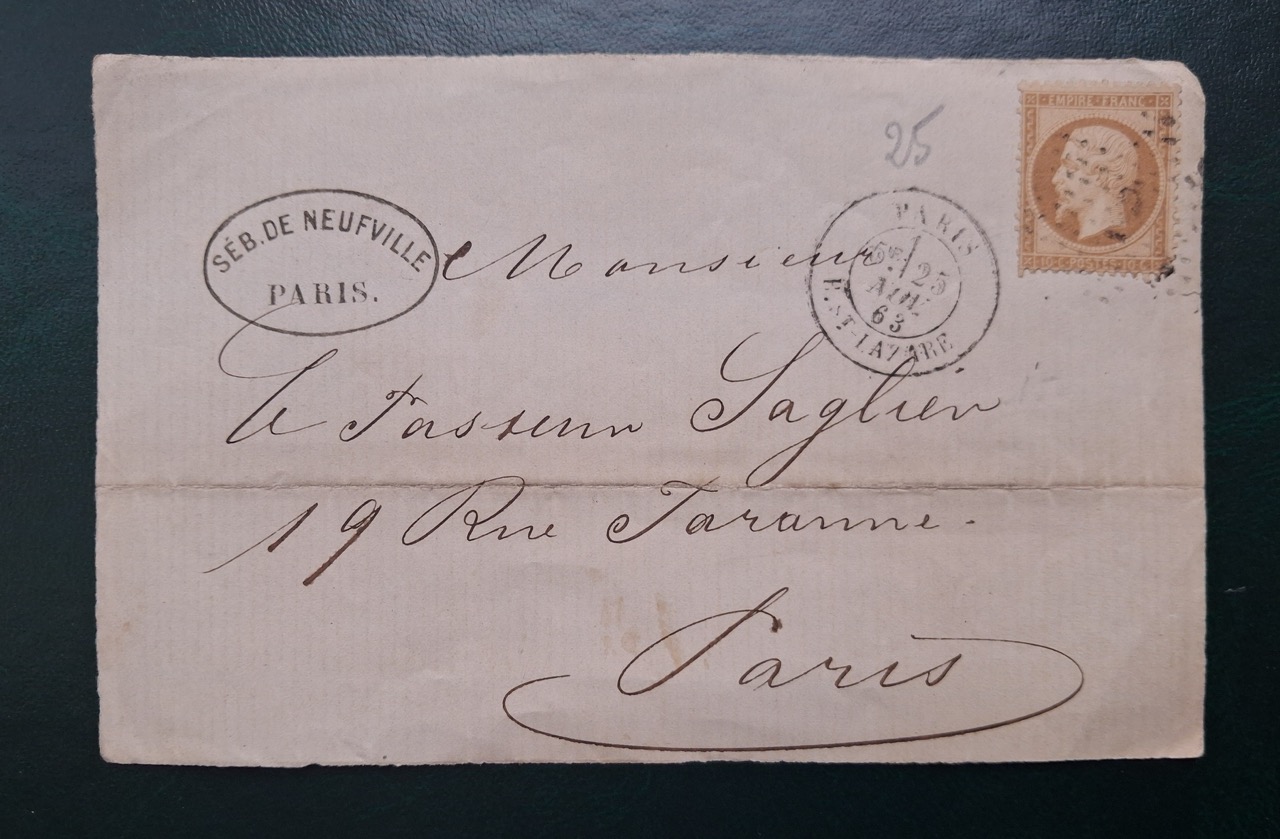 EMPIRE · FRANC ·
10 c. POSTES 10 c.
25
SÉB. DE NEUFVILLE
PARIS.
PARIS
5e
25
AOUT
63
R. ST-LAZARE
Monsieur
Le Tasseur Saglier
19 Rue Taranne.
Paris